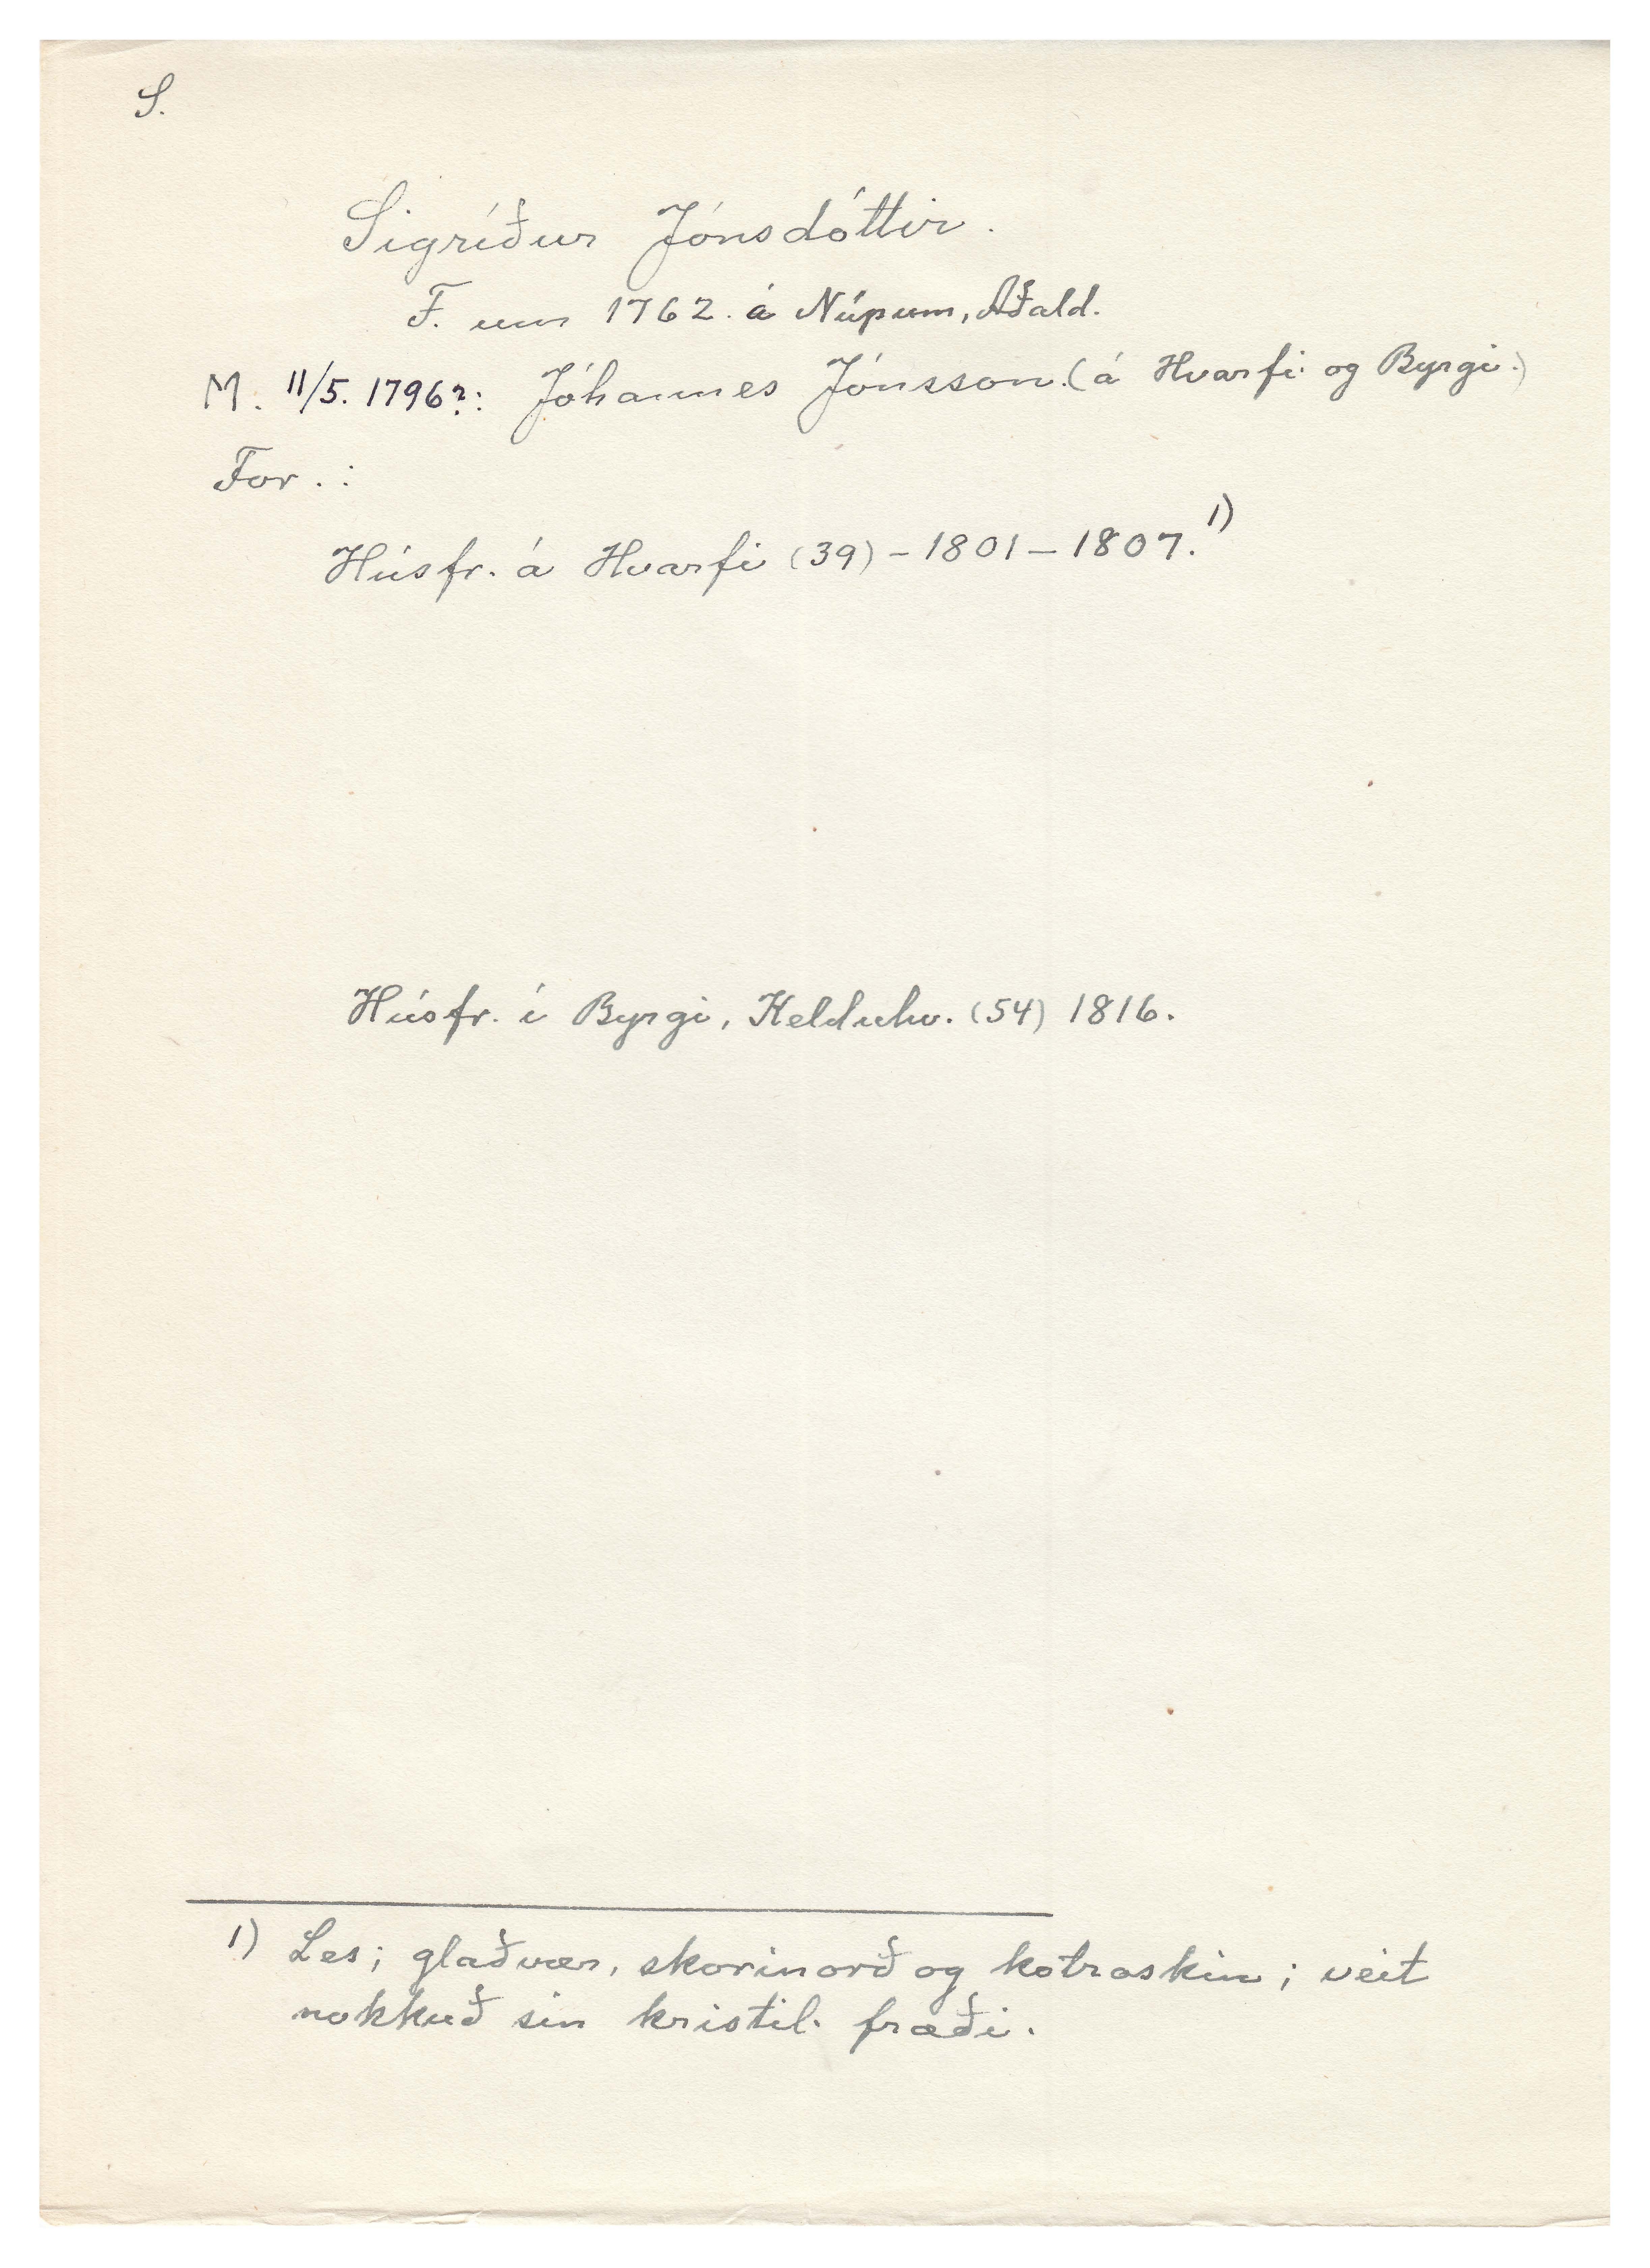 S.
Sigríður Jónsdóttir.
F. um 1762. á Núpum, Aðald.
M. 11/5. 1796?: Jóhannes Jónsson. (á Hvarfi og Byrgi.)
For. :
Húsfr. á Hvarfi (39) - 1801 - 1807. 1)
Húsfr. í Byrgi, Kelduhv. (54) 1816.
1) Les; glaðvær, skorinorð og kotroskin; veit
nokkuð sín kristil. fræði.